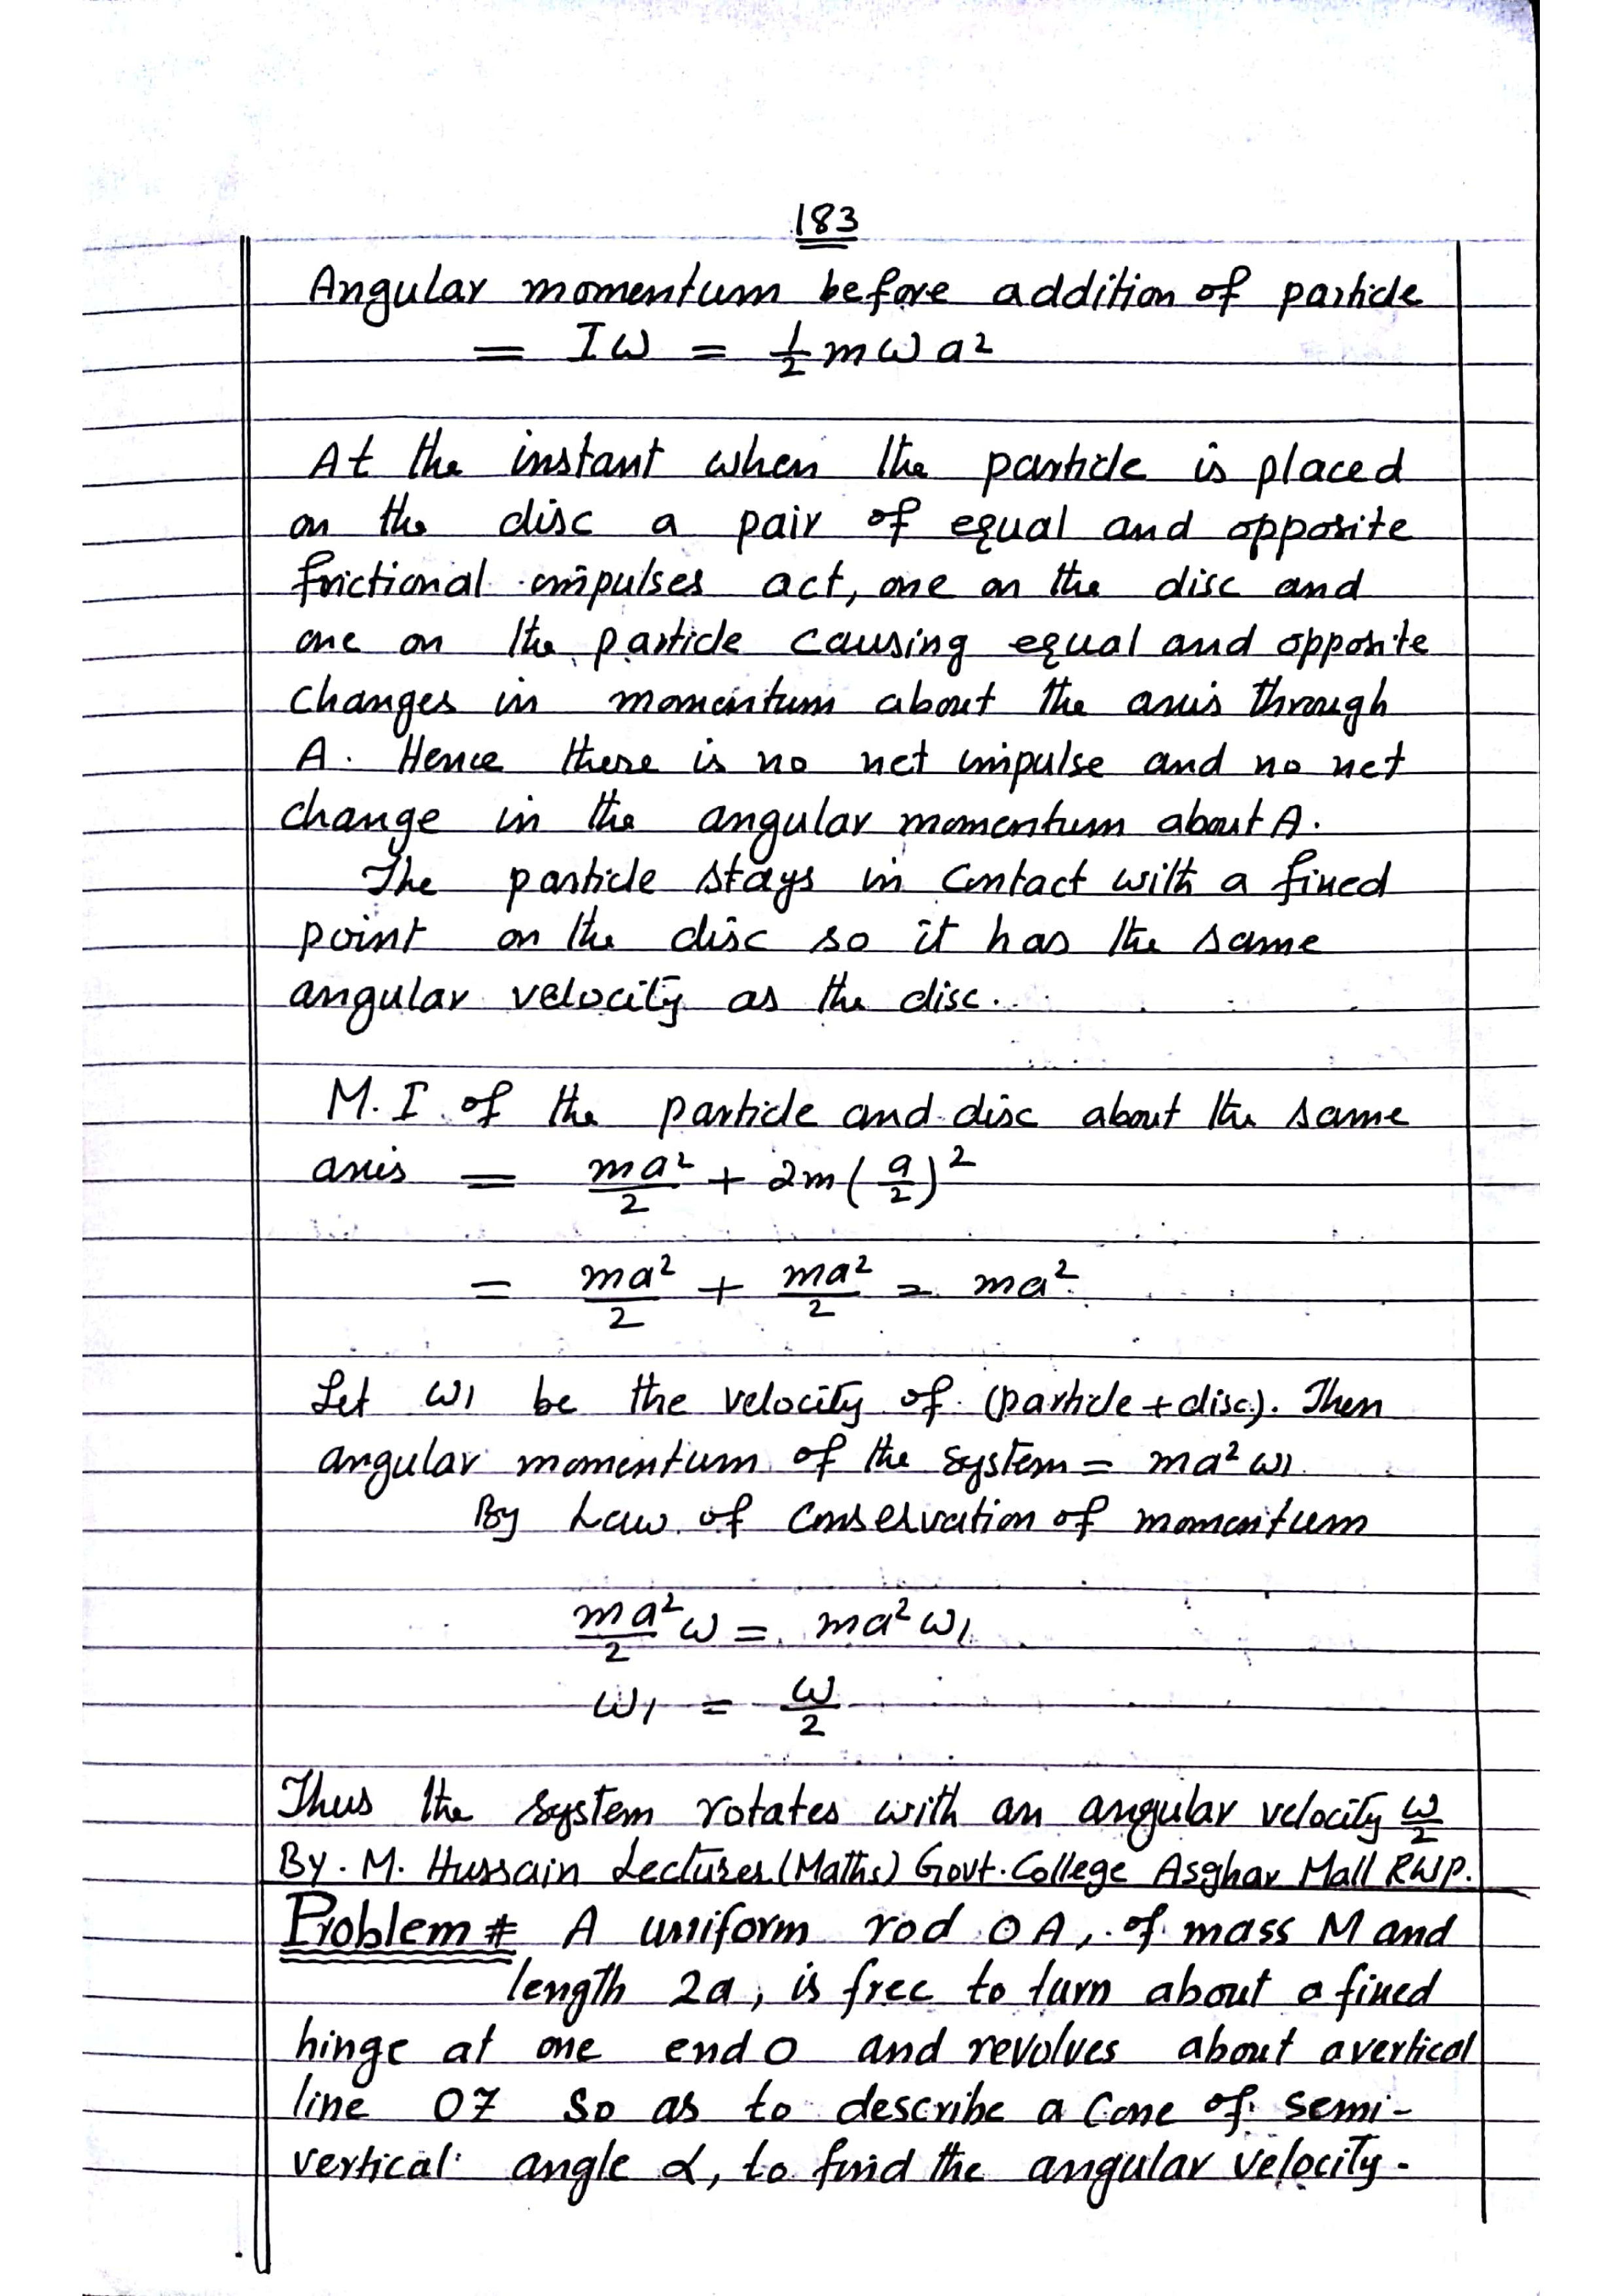 183
Angular momentum before addition of particle
= Iω = ½ mωa²
At the instant when the particle is placed
on the disc a pair of equal and opposite
frictional impulses act, one on the disc and
one on the particle causing equal and opposite
changes in momentum about the axis through
A. Hence there is no net impulse and no net
change in the angular momentum about A.
The particle stays in contact with a fixed
point on the disc so it has the same
angular velocity as the disc.
M.I of the particle and disc about the same
axis = ma²/2 + 2m(a/2)²
= ma²/2 + ma²/2 = ma²
Let ω₁ be the velocity of (particle + disc). Then
angular momentum of the system = ma²ω₁
By Law of Conservation of momentum
ma²/2 ω = ma²ω₁
ω₁ = ω/2
Thus the system rotates with an angular velocity ω/2
By. M. Hussain Lecturer (Maths) Govt. College Asghar Mall RWP.
Problem # A uniform rod OA, of mass M and
length 2a, is free to turn about a fixed
hinge at one end O and revolves about a vertical
line OZ so as to describe a Cone of semi-
vertical angle α, to find the angular velocity.